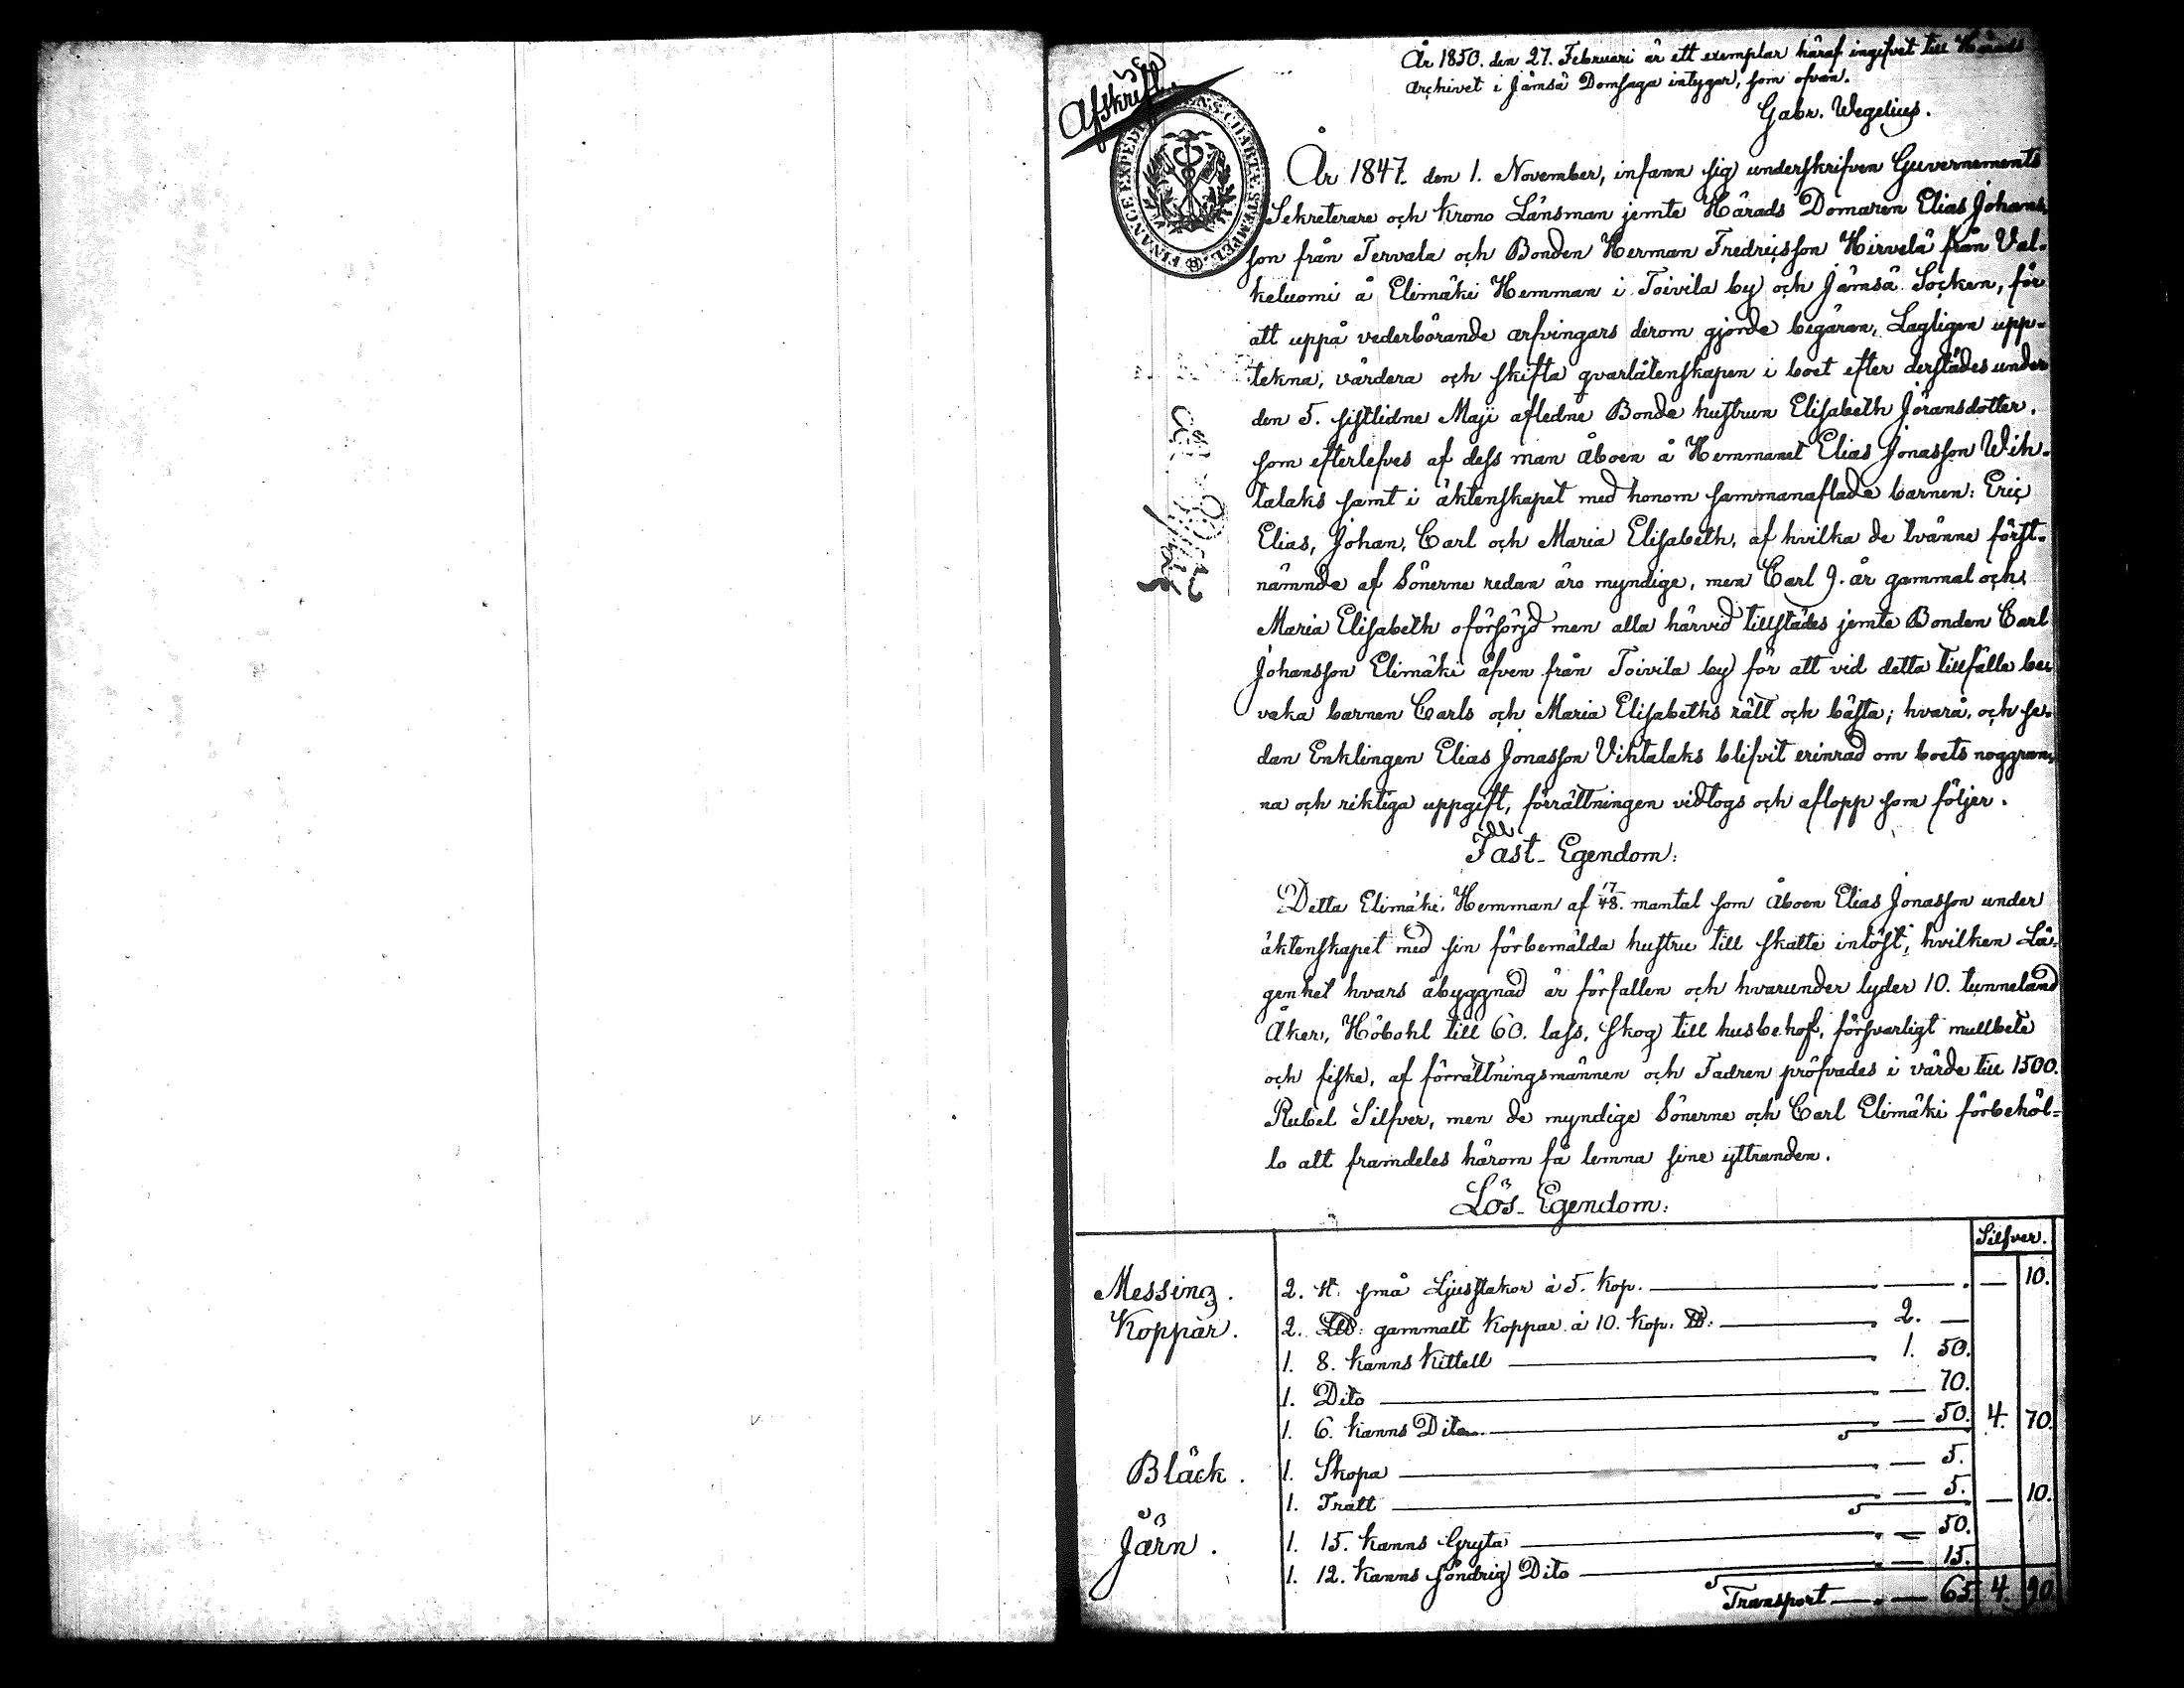 År 1850. den 27. Februari är ett exemplar häraf ingifvet till Härads
Archivet i Jämsä Domsaga intygar, som ofvan.
Gabr. Wegelius.
Afskrift.
FINANCE EXPEDITIONENS CHARTÆ STEMPEL
År 1847. den 1. November, infann sig underskrifven Guvernements
Sekreterare och Krono Länsman jemte Härads Domaren Elias Johans
son från Tervala och Bonden Herman Fredricsson Hirvelä från Val-
keluomi å Elimäki Hemman i Toivila by och Jämsä Socken, för
att uppå vederbörande arfvingars derom gjorde begäran, Lagligen upp-
tekna, värdera och skifta qvarlåtenskapen i boet efter derstädes under
den 5. sistlidne Maji afledne Bonde hustrun Elisabeth Jöransdotter,
som efterlefves af dess man Åboen å Hemmanet Elias Jonasson Wih-
talaks samt i äktenskapet med honom sammanaflade barnen: Eric
Elias, Johan, Carl och Maria Elisabeth, af hvilka de tvänne först-
nämnde af Sönerne redan äro myndige, men Carl 9. år gammal och
Maria Elisabeth oförsörjd men alla härvid tillstädes jemte Bonden Carl
Johansson Elimäki äfven från Toivila by för att vid detta tillfälle be-
vaka barnen Carls och Maria Elisabeths rätt och bästa; hvarå, och se-
dan Enklingen Elias Jonasson Vihtalaks blifvit erinrad om boets noggran-
na och riktiga uppgift, förrättningen vidtogs och aflopp som följer.
Fast Egendom:
Detta Elimäki Hemman af 17/48. mantal som Åboen Elias Jonasson under
äktenskapet med sin förbemälda hustru till skatte inlöst, hvilken Lä-
genhet hvars åbyggnad är förfallen och hvarunder lyder 10. tunneland
Åker, Höbohl till 60. lass, skog till husbehof, försvarligt mullbete
och fiske, af förrättningsmännen och Fadren pröfvades i värde till 1500.
Rubel Silfver, men de myndige Sönerne och Carl Elimäki förbehöl-
lo att framdeles härom få lemna sine yttranden.
Lös Egendom:
Silfver.
Messing. 2. st. små Ljusstakar à 5. kop. — 10.
Koppar. 2. LW: gammalt koppar à 10. kop. W: 2. —
1. 8. kanns Kittell 1. 50.
1. Dito — 70.
1. 6. kanns Dito — 50. 4. 70.
Bläck. 1. Skopa — 5.
1. Tratt — 5. — 10.
Järn. 1. 15. kanns Gryta — 50.
1. 12. kanns söndrig Dito — 15.
Transport — 65. 4. 90.